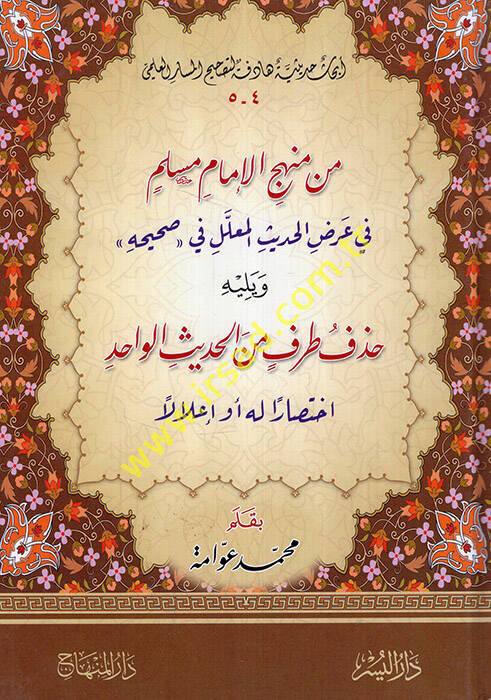 أبحاث حديثية هادفة لتصحيح المسار العلمي
٤ ـ ٥
من منهج الإمام مسلم
في عَرضِ الحديثِ المعلّلِ في «صحيحهِ»
وَيَليْهِ
حذفُ طرفٍ منَ الحديثِ الواحدِ
اختصارًا له أو إعلالًا
بقَلَم
محمّد عوّامة
دَارُ اليُسْر
دَارُ المِنْهَاج